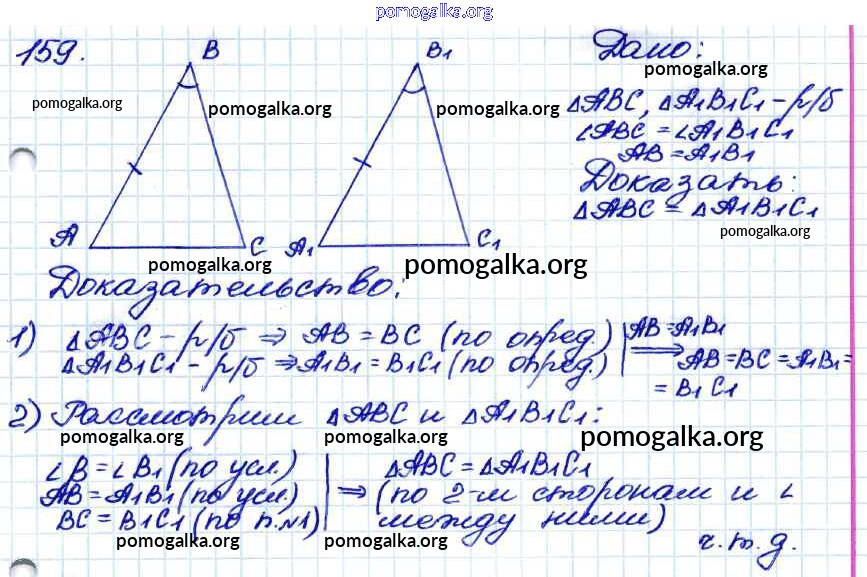 pomogalka.org
159.
B
B1
Дано:
pomogalka.org
pomogalka.org
pomogalka.org
pomogalka.org
△ABC, △A1B1C1 – р/б
∠ABC = ∠A1B1C1
AB = A1B1
Доказать:
△ABC = △A1B1C1
pomogalka.org
A
C
A1
C1
pomogalka.org
pomogalka.org
Доказательство:
1) △ABC – р/б ⇒ AB = BC (по опред.) | AB = A1B1
△A1B1C1 – р/б ⇒ A1B1 = B1C1 (по опред.) | ⇒ AB = BC = A1B1 =
= B1C1
2) Рассмотрим △ABC и △A1B1C1:
pomogalka.org
pomogalka.org
pomogalka.org
∠B = ∠B1 (по усл.) | △ABC = △A1B1C1
AB = A1B1 (по усл.) | ⇒ (по 2-м сторонам и ∠
BC = B1C1 (по п.№1) | между ними)
pomogalka.org
pomogalka.org
ч.т.д.